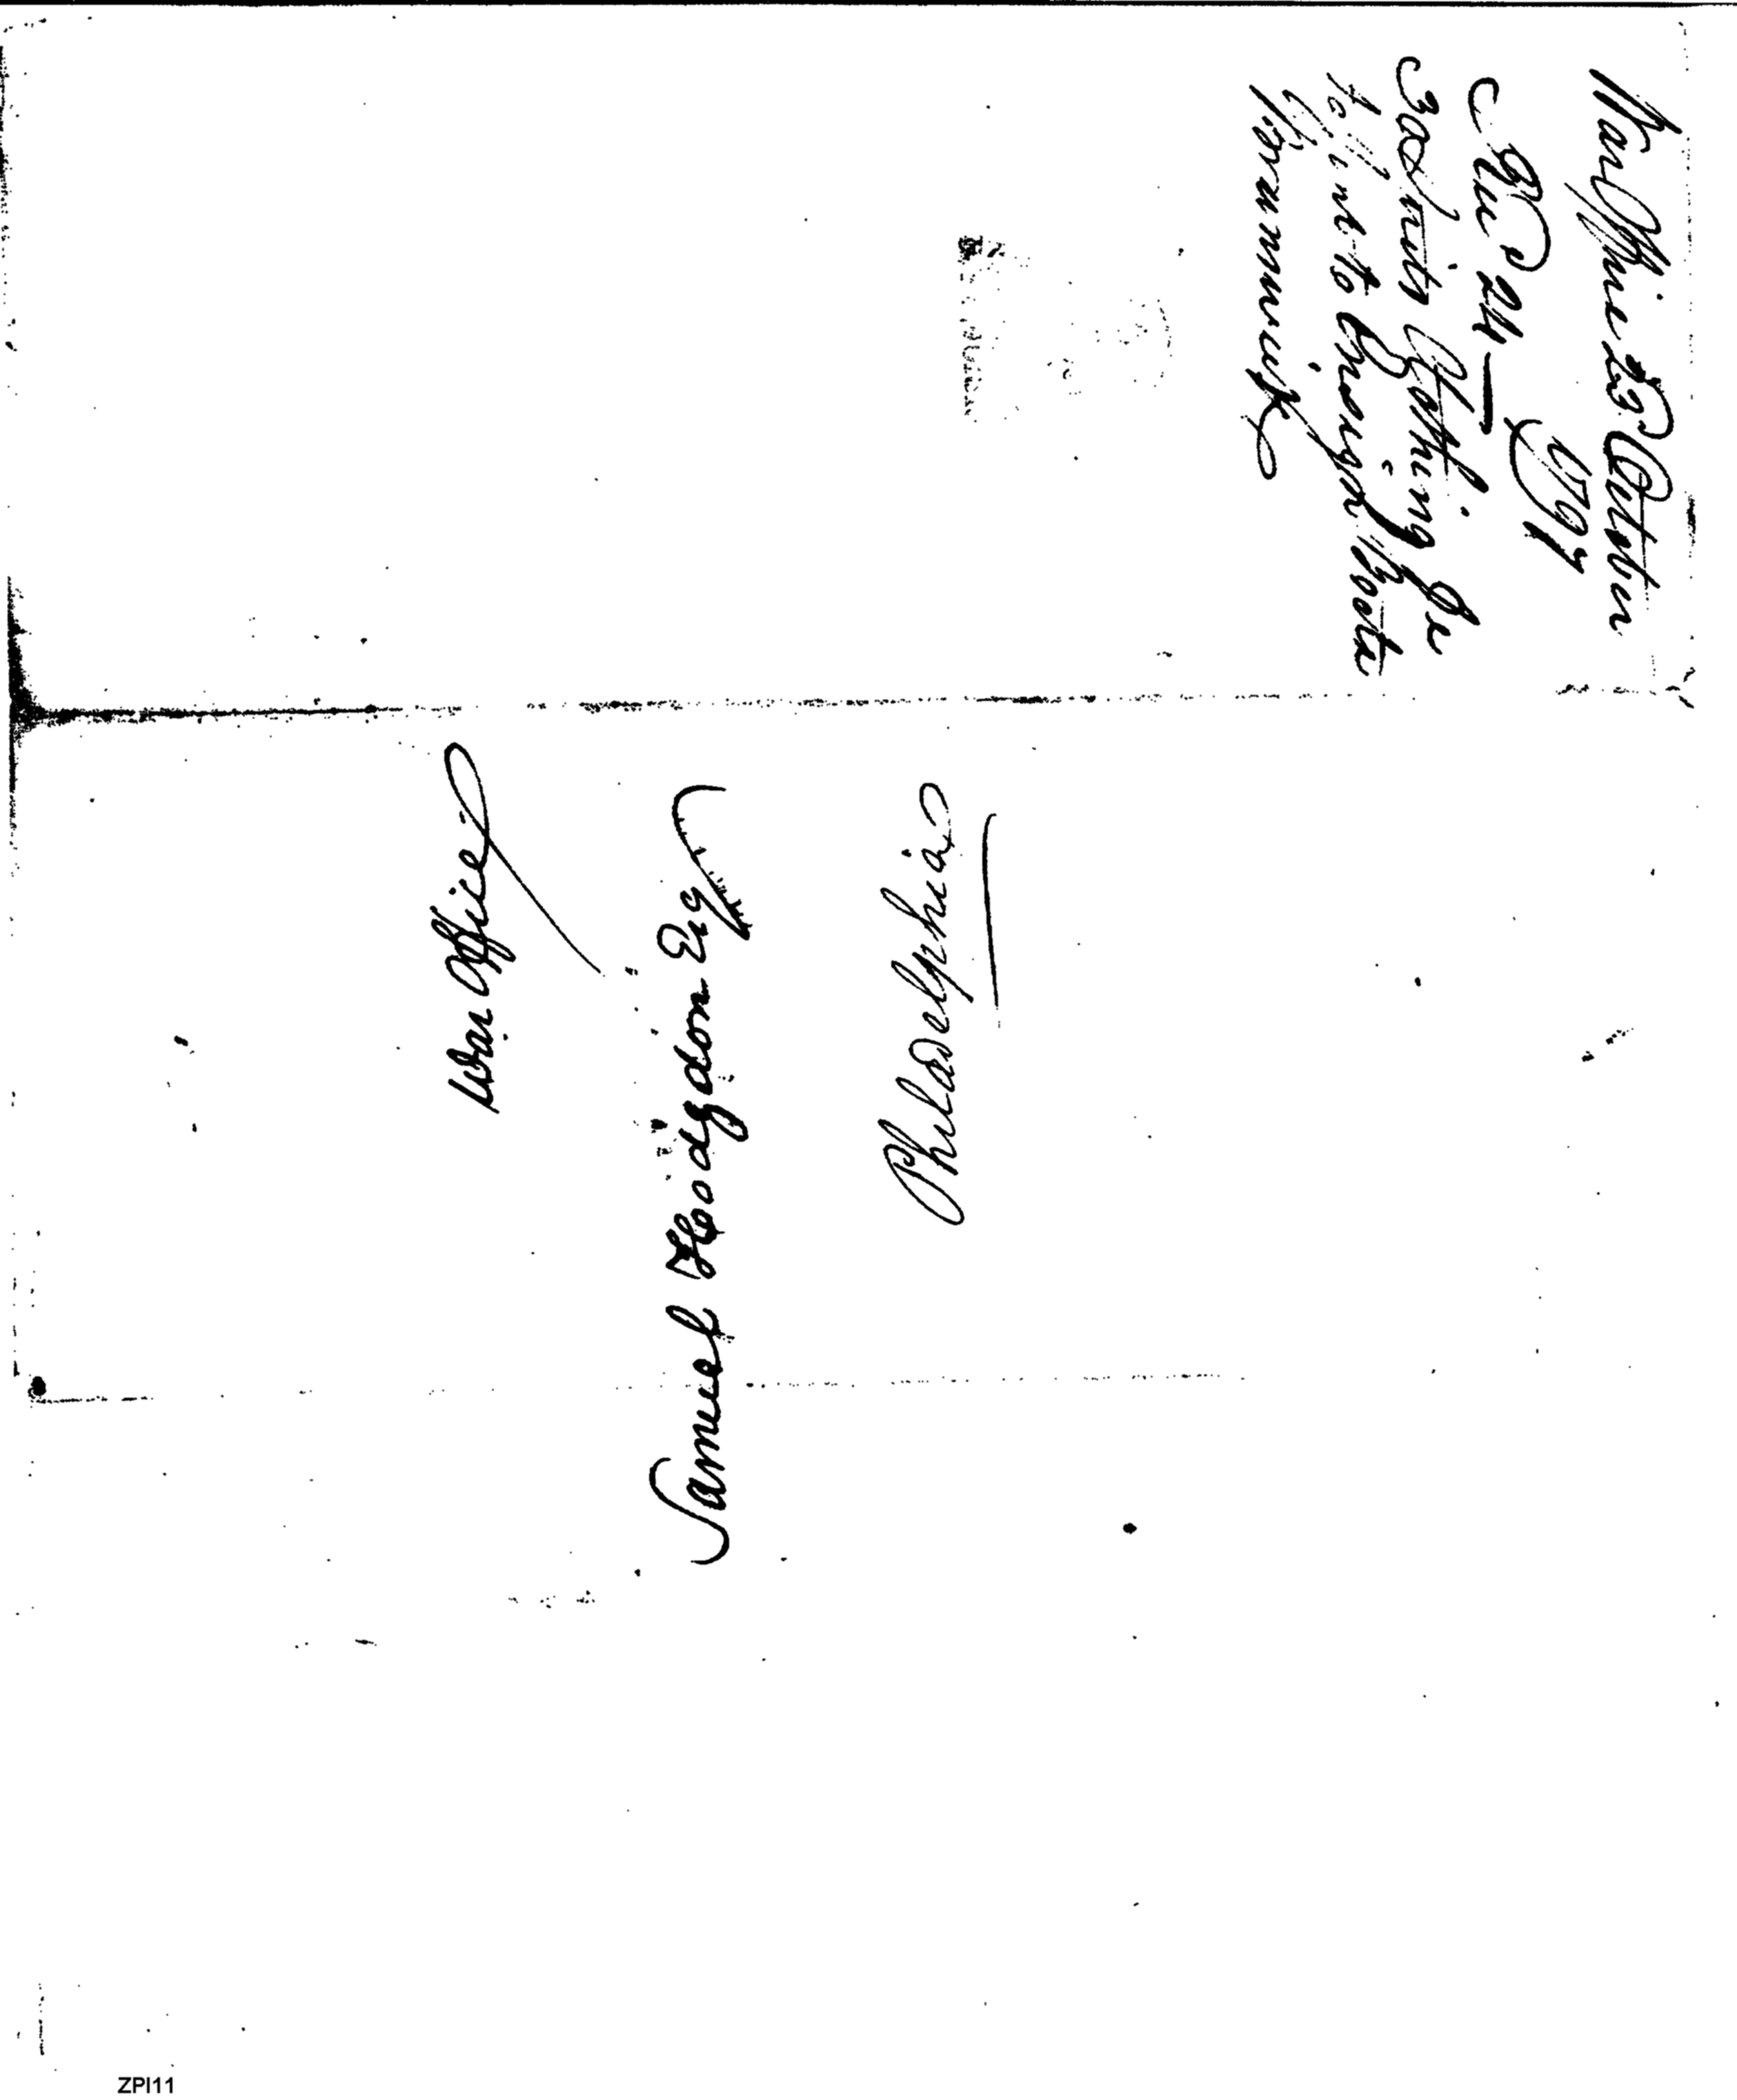 War Office 23 October
1797
Rec'd 24 —
30 Suits Clothing &c
to be sent to Ensign
War Office
Samuel Hodgdon Esq
Philadelphia
ZPI11